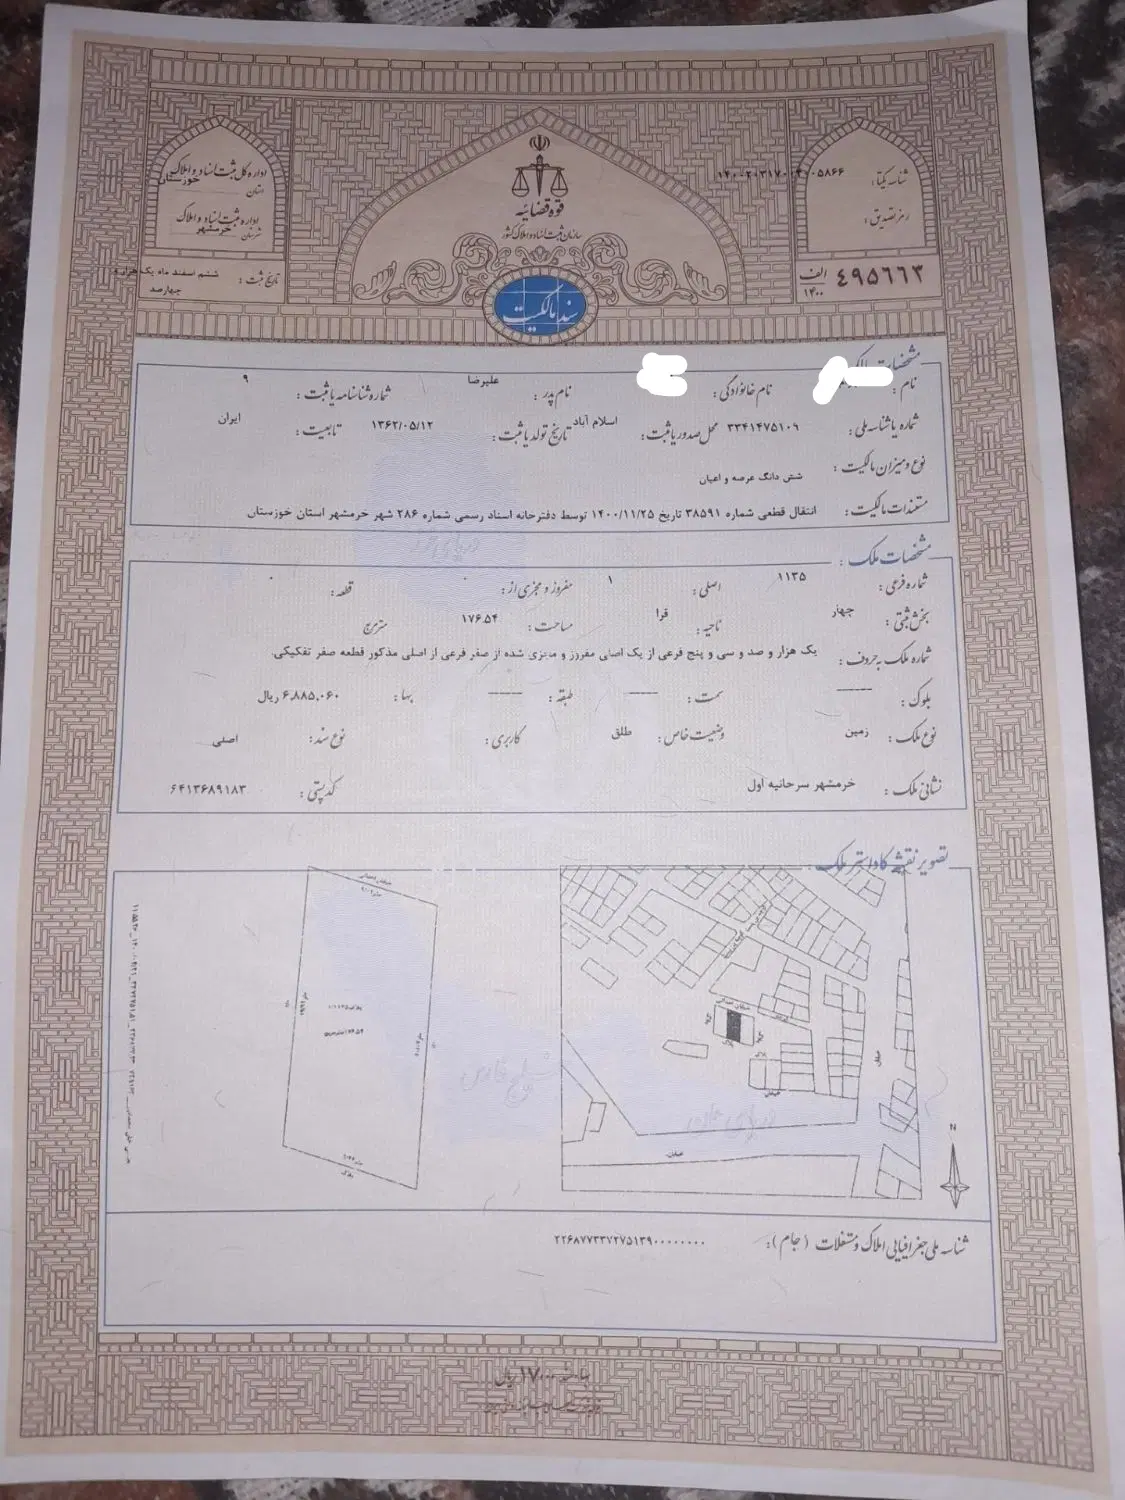 قوه قضائیه
سازمان ثبت اسناد و املاک کشور
سند مالکیت
شناسه یکتا:
رمز تصدیق:
۴۹۵۶۶۳ الف ۱۴۰۰
اداره کل ثبت اسناد و املاک
استان خوزستان
اداره ثبت اسناد و املاک
شهرستان خرمشهر
تاریخ ثبت: ششم اسفند ماه یک هزار و
چهارصد
نام: نام خانوادگی: نام پدر: علیرضا شماره شناسنامه یا ثبت: ۹
شماره یا شناسه ملی: ۳۳۴۱۴۷۵۱۰۹ محل صدور یا ثبت: اسلام آباد تاریخ تولد یا ثبت: ۱۳۶۲/۰۵/۱۲ تابعیت: ایران
نوع و میزان مالکیت: شش دانگ عرصه و اعیان
مستندات مالکیت: انتقال قطعی شماره ۳۸۵۹۱ تاریخ ۱۴۰۰/۱۱/۲۵ توسط دفترخانه اسناد رسمی شماره ۲۸۶ شهر خرمشهر استان خوزستان
مشخصات ملک:
شماره فرعی: ۱۱۳۵ اصلی: ۱ مفروز و مجزی از: ۰ قطعه: ۰
بخش ثبتی: چهار ناحیه: قرا مساحت: ۱۷۶.۵۴ متر مربع
شماره ملک به حروف: یک هزار و صد و سی و پنج فرعی از یک اصلی مفروز و مجزی شده از صفر فرعی از اصلی مذکور قطعه صفر تفکیکی.
بلوک: ------ سمت: ------ طبقه: ------ بها: ۶,۸۸۵,۰۶۰ ریال
نوع ملک: زمین وضعیت خاص: طلق کاربری: نوع سند: اصلی
نشانی ملک: خرمشهر سرحانیه اول کد پستی: ۶۴۱۳۶۸۹۱۸۳
تصویر نقشه کاداستر ملک
خیابان
خیابان
N
دریای خزر
خلیج فارس
دریای عمان
شناسه ملی جغرافیایی املاک و مستغلات (جام):